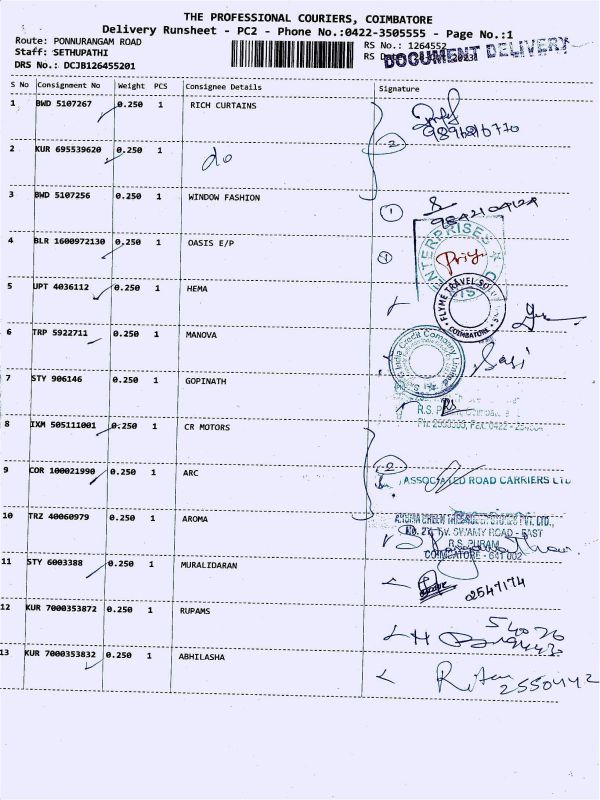 THE PROFESSIONAL COURIERS, COIMBATORE
Delivery Runsheet - PC2 - Phone No.:0422-3505555 - Page No.:1
Route: PONNURANGAM ROAD
RS No.: 1264552
Staff: SETHUPATHI
RS
DOCUMENT DELIVERY
DRS No.: DCJB126455201
S No Consignment No Weight PCS Consignee Details Signature
1 BWD 5107267 0.250 1 RICH CURTAINS
2 KUR 695539620 0.250 1 do
2
3 BWD 5107256 0.250 1 WINDOW FASHION
1
4 BLR 1600972130 0.250 1 OASIS E/P
ENTERPRISES
Priya
5 UPT 4036112 0.250 1 HEMA
FLYME TRAVEL
COIMBATORE
6 TRP 5922711 0.250 1 MANOVA
India Credit Company Limited
Sasi
7 STY 906146 0.250 1 GOPINATH
R.S.
8 IXM 505111001 0.250 1 CR MOTORS
9 COR 100021990 0.250 1 ARC
2
ASSOCIATED ROAD CARRIERS LTD
10 TRZ 40060979 0.250 1 AROMA
SWAMY ROAD - EAST
R.S. PURAM,
COIMBATORE - 641 002
11 STY 6003388 0.250 1 MURALIDARAN
2547174
12 KUR 7000353872 0.250 1 RUPAMS
13 KUR 7000353832 0.250 1 ABHILASHA
2550442